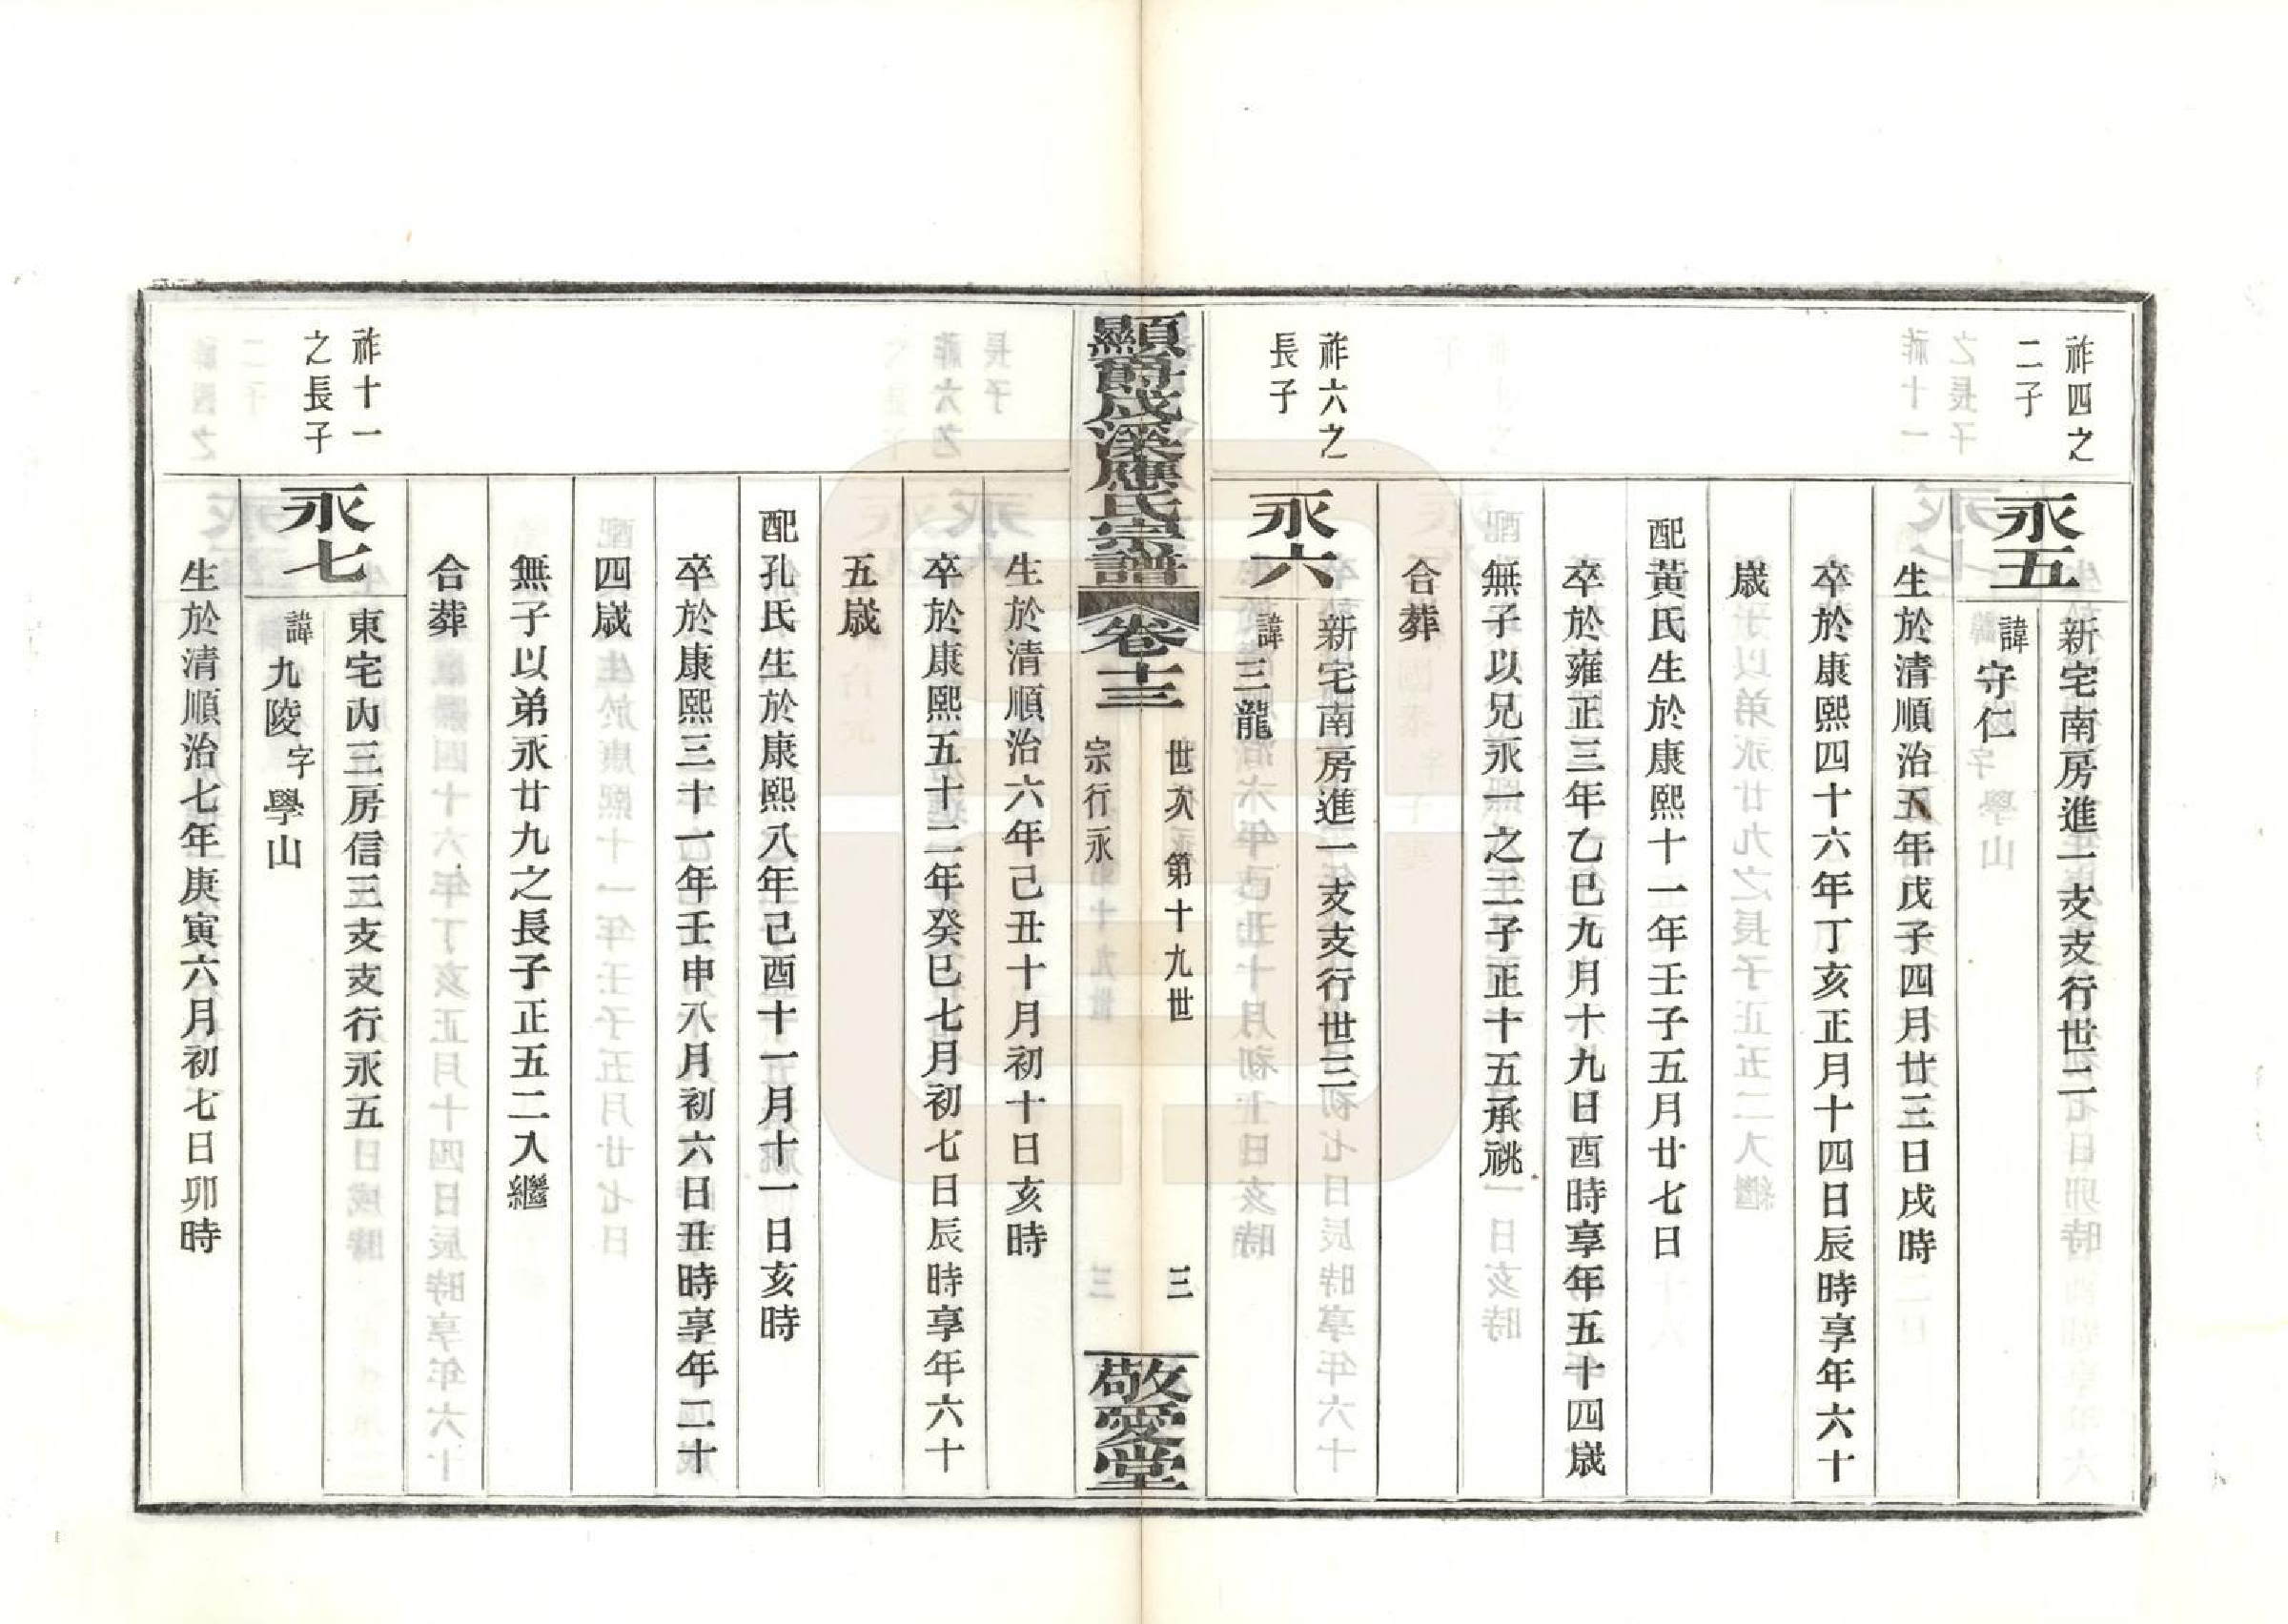 祚四之
二子
永五
新宅南房進一支支行世二
諱守仁
生於清順治五年戊子四月廿三日戌時
卒於康熙四十六年丁亥正月十四日辰時享年六十
歲
配黃氏生於康熙十一年壬子五月廿七日
卒於雍正三年乙巳九月十九日酉時享年五十四歲
無子以兄永一之二子正十五承祧
合葬
祚六之
長子
永六
新宅南房進一支支行世三
諱三龍
顯爵成溪應氏宗譜
卷十三
世次第十九世
宗行永
三
敬愛堂
生於清順治六年己丑十月初十日亥時
卒於康熙五十二年癸巳七月初七日辰時享年六十
五歲
配孔氏生於康熙八年己酉十一月十一日亥時
卒於康熙三十一年壬申八月初六日丑時享年二十
四歲
無子以弟永廿九之長子正五二入繼
合葬
祚十一
之長子
永七
東宅內三房信三支支行永五
諱九陵字學山
生於清順治七年庚寅六月初七日卯時